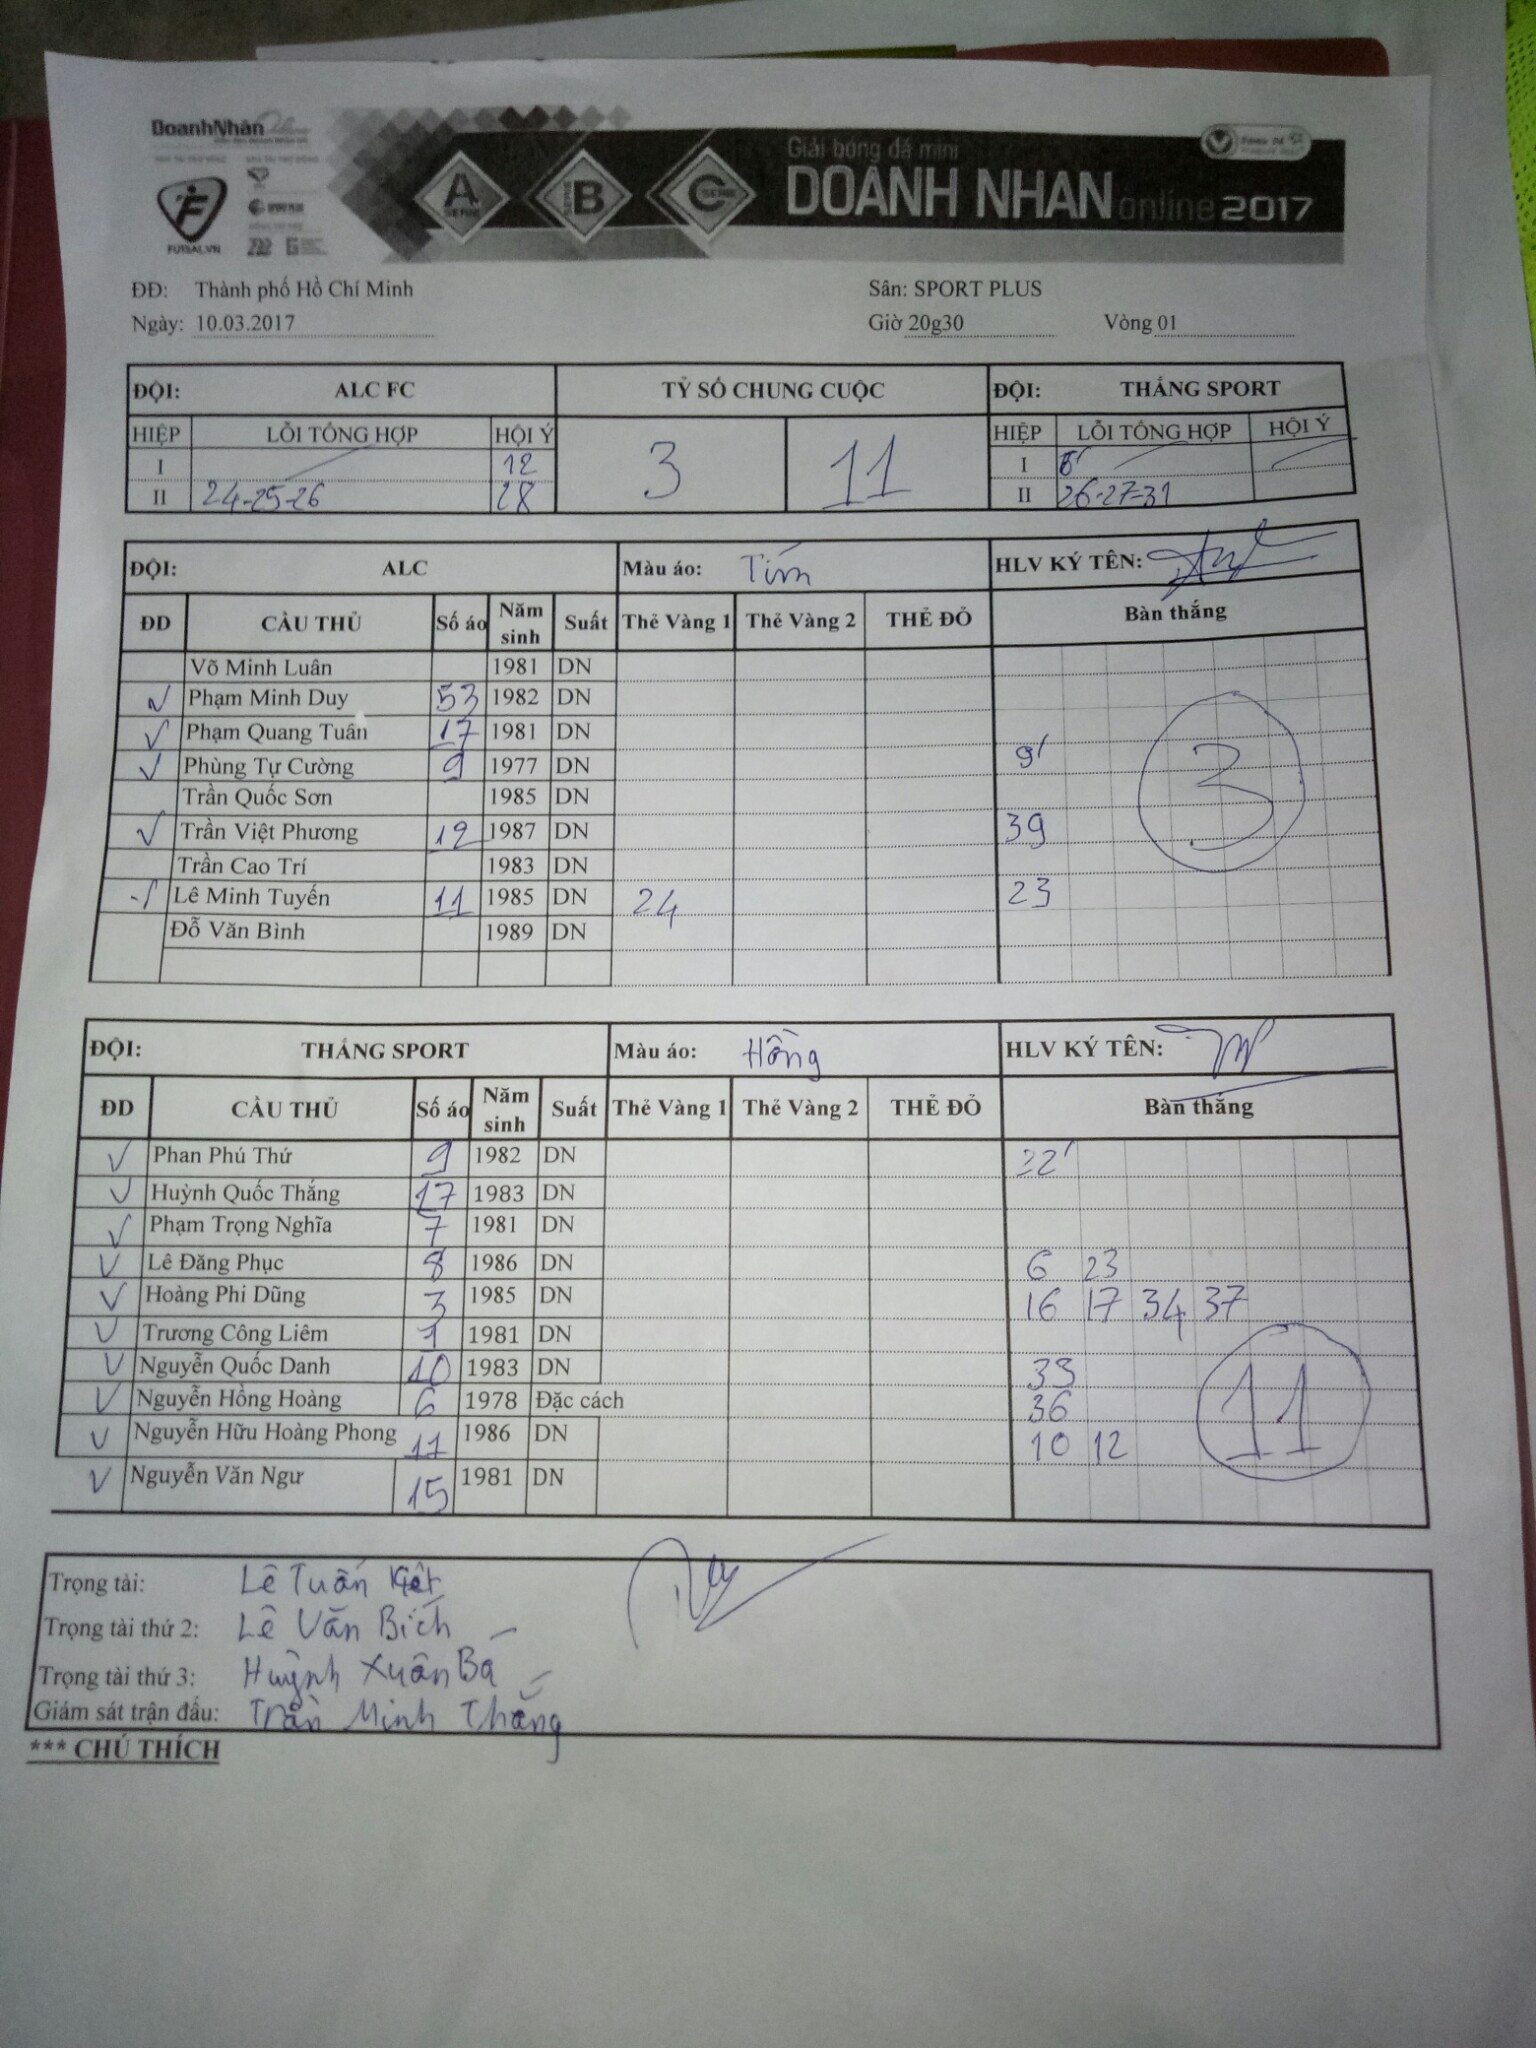 DoanhNhân Online
FUTSAL.VN
SPORT PLUS
A SERIE
B SERIE
C SERIE
Giải bóng đá mini
DOANH NHAN online 2017
ĐĐ: Thành phố Hồ Chí Minh Sân: SPORT PLUS
Ngày: 10.03.2017 Giờ 20g30 Vòng 01
ĐỘI: ALC FC TỶ SỐ CHUNG CUỘC ĐỘI: THẮNG SPORT
HIỆP LỖI TỔNG HỢP HỘI Ý 3 11 HIỆP LỖI TỔNG HỢP HỘI Ý
I 12 I
II 24-25-26 28 II 26-27-31
ĐỘI: ALC Màu áo: Tím HLV KÝ TÊN:
ĐD CẦU THỦ Số áo Năm sinh Suất Thẻ Vàng 1 Thẻ Vàng 2 THẺ ĐỎ Bàn thắng
Võ Minh Luân 1981 DN
✓ Phạm Minh Duy 53 1982 DN
✓ Phạm Quang Tuân 17 1981 DN
✓ Phùng Tự Cường 9 1977 DN 9'
Trần Quốc Sơn 1985 DN
✓ Trần Việt Phương 12 1987 DN 39
Trần Cao Trí 1983 DN
✓ Lê Minh Tuyến 11 1985 DN 24 23
Đỗ Văn Bình 1989 DN
3
ĐỘI: THẮNG SPORT Màu áo: Hồng HLV KÝ TÊN:
ĐD CẦU THỦ Số áo Năm sinh Suất Thẻ Vàng 1 Thẻ Vàng 2 THẺ ĐỎ Bàn thắng
✓ Phan Phú Thứ 9 1982 DN 22'
✓ Huỳnh Quốc Thắng 17 1983 DN
✓ Phạm Trọng Nghĩa 7 1981 DN
✓ Lê Đăng Phục 8 1986 DN 6 23
✓ Hoàng Phi Dũng 3 1985 DN 16 17 34 37
✓ Trương Công Liêm 1 1981 DN
✓ Nguyễn Quốc Danh 10 1983 DN 33
✓ Nguyễn Hồng Hoàng 6 1978 Đặc cách 36
✓ Nguyễn Hữu Hoàng Phong 11 1986 DN 10 12
✓ Nguyễn Văn Ngư 15 1981 DN
11
Trọng tài: Lê Tuấn Kiệt
Trọng tài thứ 2: Lê Văn Bích
Trọng tài thứ 3: Huỳnh Xuân Bá
Giám sát trận đấu: Trần Minh Thắng
*** CHÚ THÍCH